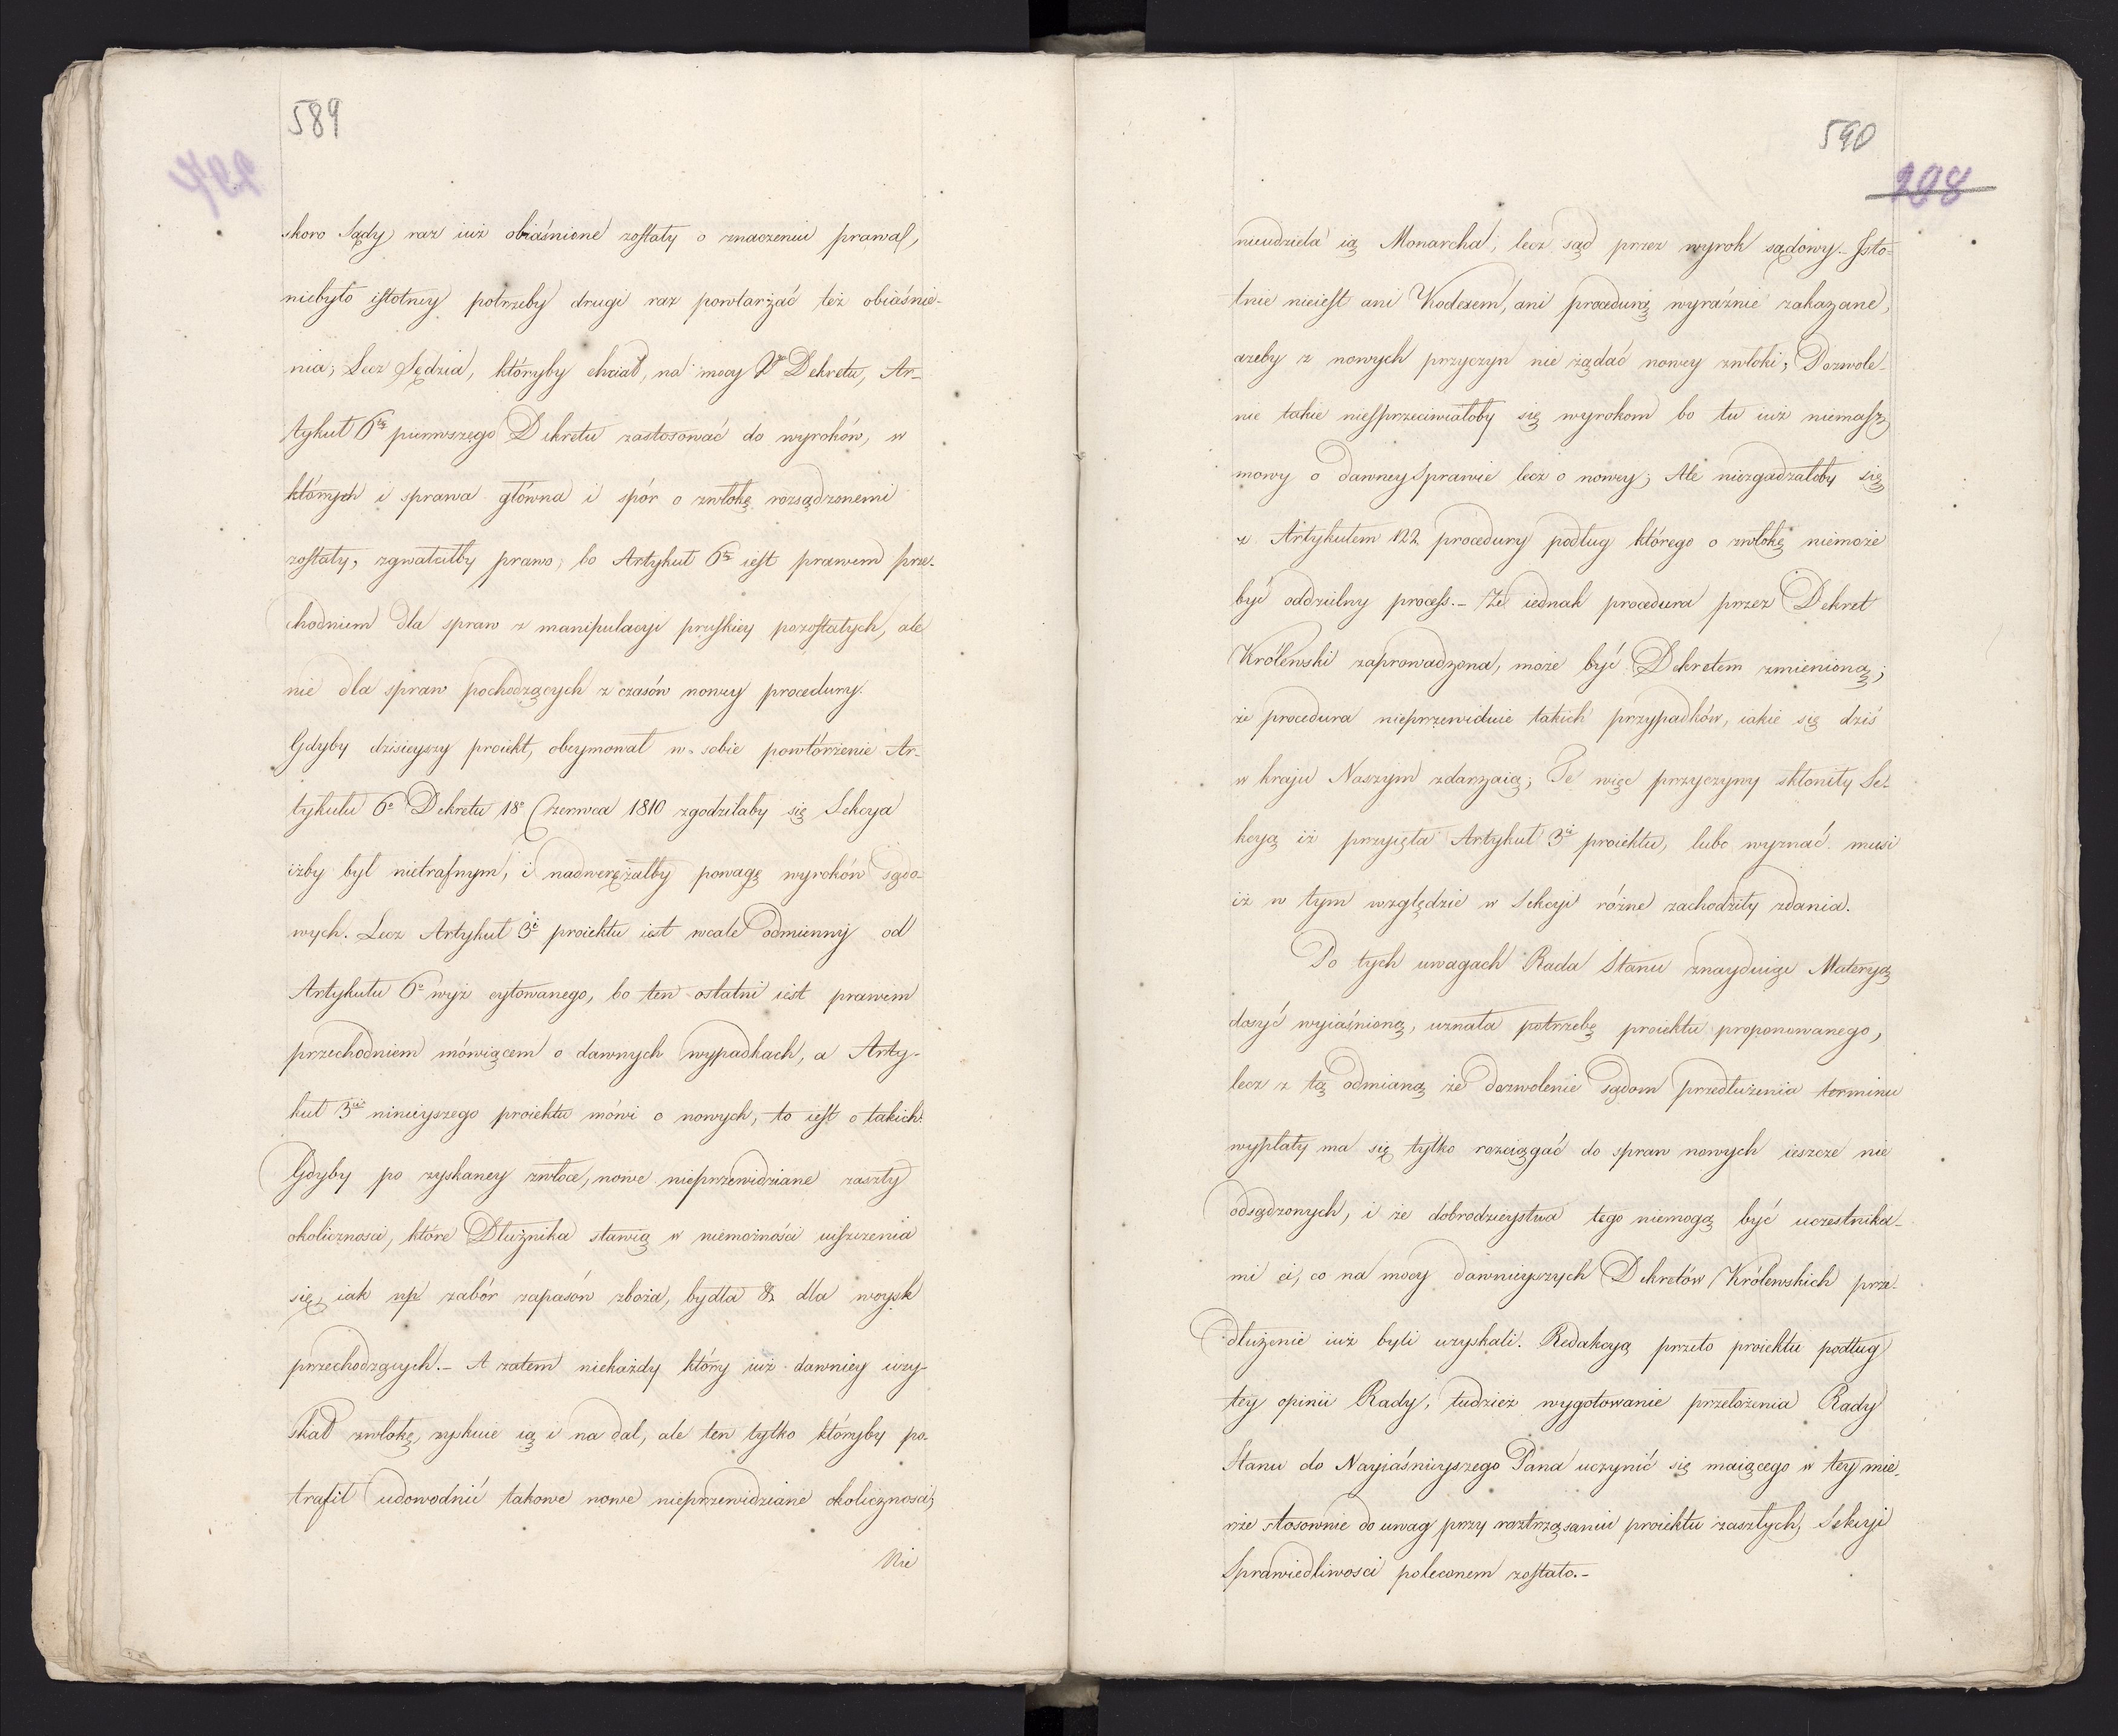 589
skoro Sądy raz iuż obiaśnione zostały o znaczeniu prawa,
niebyło istotney potrzeby drugi raz powtarzać też obiaśnie-
nia; Lecz Sędzia, któryby chciał, na mocy Dekretu, Ar-
tykuł 6ty pierwszego Dekretu zastosować do wyroków, w
których i sprawa główna i spór o zwłokę rozsądzonemi
zostały, zgwałciłby prawo, bo Artykuł 6ty iest prawem prze-
chodniem dla spraw z manipulacyi pruskiey pozostałych, ale
nie dla spraw pochodzących z czasów nowey procedury.
Gdyby dzisieyszy proiekt, obeymował w sobie powtórzenie Ar-
tykułu 6o Dekretu 18o Czerwca 1810 zgodziłaby się Sekcya
iżby był nietrafnym, i nadwerężałby powagę wyroków sądo-
wych. Lecz Artykuł 3i proiektu iest wcale odmienny od
Artykułu 6o wyż cytowanego, bo ten ostatni iest prawem
przechodniem mówiącem o dawnych wypadkach, a Arty-
kuł 3ci ninieyszego proiektu mówi o nowych, to iest o takich:
Gdyby po zyskaney zwłoce, nowe nieprzewidziane zaszły
okoliczności, które Dłużnika stawią w niemożności uiszczenia
się, iak np zabór zapasów zboża, bydła & dla woysk
przechodzących.- A zatem niekażdy który iuż dawniey uzy-
skał zwłokę, zyskuie ią i na dal, ale ten tylko któryby po-
trafił udowodnić takowe nowe nieprzewidziane okoliczności;
Nie
590
298
nieudziela ią Monarcha, lecz sąd przez wyrok sądowy.- Isto-
tnie nieiest ani Kodexem, ani procedurą wyraźnie zakazane,
ażeby z nowych przyczyn nie żądać nowey zwłoki; Dozwole-
nie takie niesprzeciwiałoby się wyrokom bo tu iuż niemasz
mowy o dawney sprawie lecz o nowey; Ale niezgadzałoby się
z Artykułem 122 procedury podług którego o zwłokę niemoże
być oddzielny process.- Że iednak procedura przez Dekret
Królewski zaprowadzona, może być Dekretem zmienioną;
że procedura nieprzewiduie takich przypadków, iakie się dziś
w kraju Naszym zdarzaią; Te więc przyczyny skłoniły Se-
kcyą iż przyięła Artykuł 3i proiektu, lubo wyznać musi
iż w tym względzie w Sekcyi różne zachodziły zdania.
Po tych uwagach Rada Stanu znayduiąc Materyą
dosyć wyiaśnioną, uznała potrzebę proiektu proponowanego,
lecz z tą odmianą że dozwolenie sądom przedłużenia terminu
wypłaty ma się tylko rozciągać do spraw nowych ieszcze nie
odsądzonych, i że dobrodzieystwa tego niemogą być uczestnika-
mi ci, co na mocy dawnieyszych Dekretów Królewskich prze-
dłużenie iuż byli uzyskali. Redakcyą przeto proiektu podług
tey opinii Rady, tudzież wygotowanie przełożenia Rady
Stanu do Nayiaśnieyszego Pana uczynić się maiącego w tey mie-
rze stosownie do uwag przy roztrząsaniu proiektu zaszłych, Sekcyi
Sprawiedliwosci poleconem zostało.-